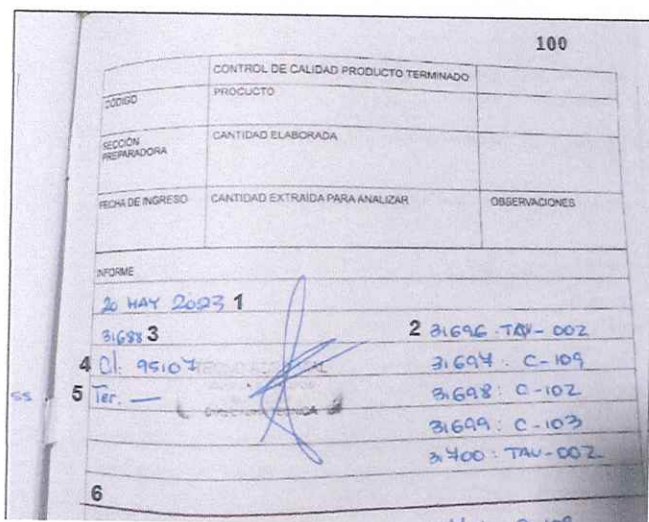 100
CONTROL DE CALIDAD PRODUCTO TERMINADO
CÓDIGO
PRODUCTO
SECCIÓN PREPARADORA
CANTIDAD ELABORADA
FECHA DE INGRESO
CANTIDAD EXTRAÍDA PARA ANALIZAR
OBSERVACIONES
INFORME
20 MAY 2023 1
31688 3
2 31696: TAV-002
4 Cl: 95107
31697: C-109
ss
5 Ter. —
31698: C-102
31699: C-103
31700: TAV-002
6